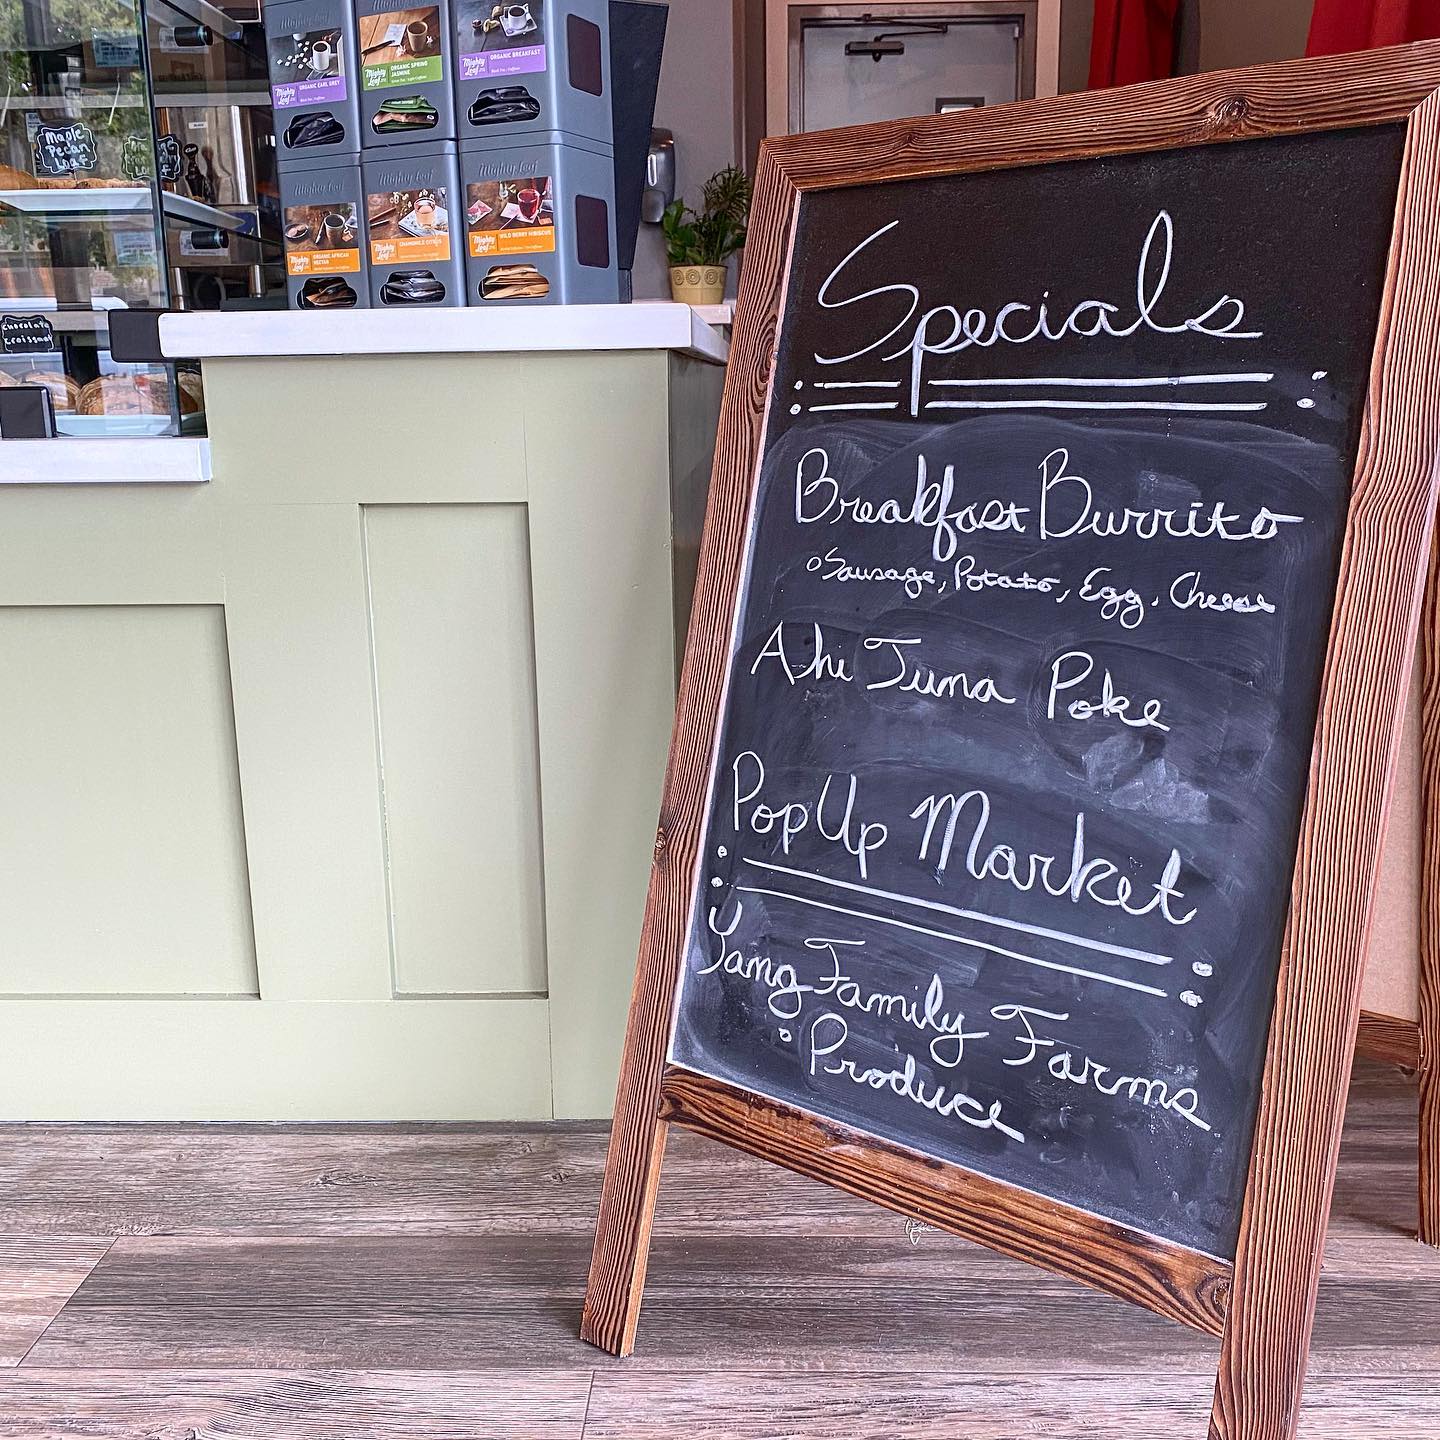 Maple
Pecan
Loaf
chocolate
croissant
Mighty
Leaf TEA
ORGANIC EARL GREY
Mighty
Leaf TEA
ORGANIC SPRING
JASMINE
Mighty
Leaf TEA
ORGANIC BREAKFAST
Mighty Leaf
Mighty Leaf
Mighty Leaf
Mighty
Leaf
ORGANIC AFRICAN
NECTAR
Mighty
Leaf
CHAMOMILE CITRUS
Mighty
Leaf
WILD BERRY HIBISCUS
Specials
Breakfast Burrito
Sausage, Potato, Egg, Cheese
Ahi Tuna Poke
Pop Up Market
Yang Family Farms
• Produce